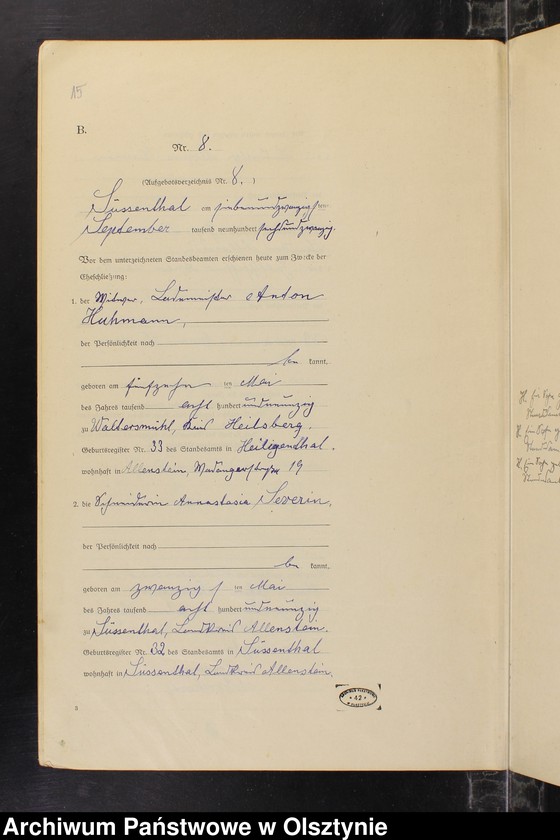 15
B.
Nr. 8.
(Aufgebotsverzeichnis Nr. 8. )
Süssenthal am siebenundzwanzigsten
September tausend neunhundert sechsundzwanzig.
Vor dem unterzeichneten Standesbeamten erschienen heute zum Zwecke der
Eheschließung:
1. der Witwer, Lademeister Anton
Huhmann,
der Persönlichkeit nach
be kannt,
geboren am fünfzehn ten Mai
des Jahres tausend acht hundert undneunzig
zu Waltersmühl, Kreis Heilsberg.
Geburtsregister Nr. 33 des Standesamts in Heiligenthal.
wohnhaft in Allenstein, 19
2. die Schneiderin Annastasia Severin,
der Persönlichkeit nach
be kannt,
geboren am zwanzigs ten Mai
des Jahres tausend acht hundert undneunzig
zu Süssenthal, Landkreis Allenstein.
Geburtsregister Nr. 32 des Standesamts in Süssenthal
wohnhaft in Süssenthal, Landkreis Allenstein,
42
Archiwum Państwowe w Olsztynie